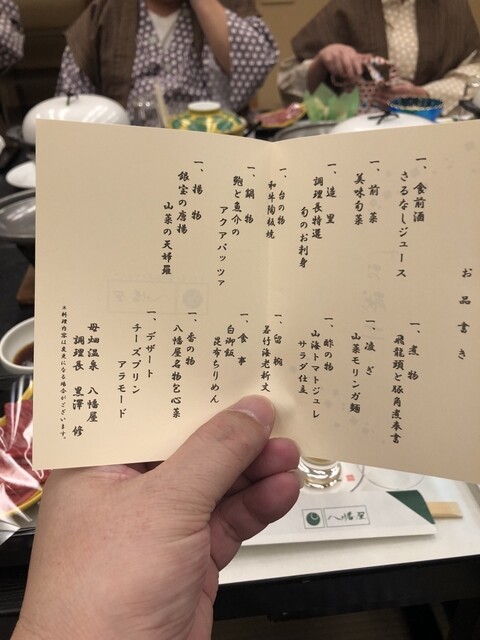 お品書き
一、食前酒
さるなしジュース
一、前菜
美味旬菜
一、造里
調理長特選
旬のお刺身
一、台の物
和牛陶板焼
一、鍋物
鮑と魚介の
アクアパッツァ
一、揚物
銀宝の唐揚
山菜の天婦羅
一、煮物
飛龍頭と豚角煮
一、凌ぎ
山菜モリンガ麺
一、酢の物
山海トマトジュレ
サラダ仕立
一、留椀
若竹海老新丈
一、食事
白御飯
昆布ちりめん
一、香の物
八幡屋名物包心菜
一、デザート
チーズプリン
アラモード
母畑温泉 八幡屋
調理長 黒澤 修
*料理内容は変更になる場合がございます。
八幡屋